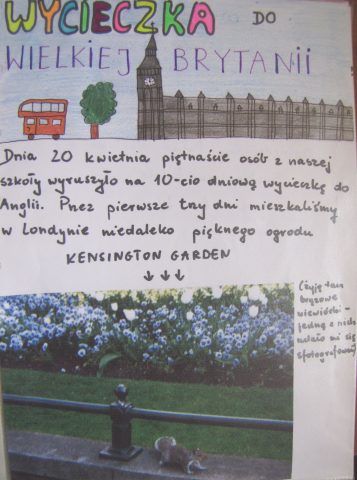 WYCIECZKA DO
WIELKIEJ BRYTANII
Dnia 20 kwietnia piętnaście osób z naszej
szkoły wyruszyło na 10-cio dniową wycieczkę do
Anglii. Przez pierwsze trzy dni mieszkaliśmy
w Londynie niedaleko pięknego ogrodu
KENSINGTON GARDEN
↓ ↓ ↓
Żyją tam
brązowe
wiewiórki -
jedną z nich
udało mi się
sfotografować